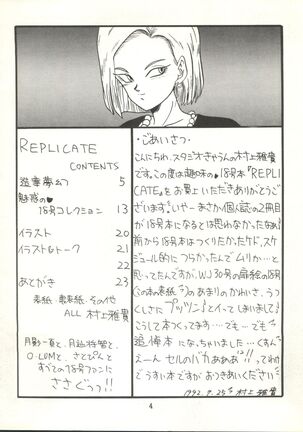 REPLICATE
CONTENTS
造華夢幻 5
魅惑の♥
18号コレクション 13
イラスト 20
イラスト&トーク 21
22
あとがき 23
表紙・裏表紙・その他
ALL 村上雅貴
月影一真と、月辿時寄と、
O・LOMと、さとぴんと
すべての18号ファンに
ささぐっっ!!
・ごあいさつ・
こんにちわ、スタジオきゃらんの村上雅貴
です。この度は趣味の♥18号本『REPLI
CATE』をお買上いただきありがとうご
ざいます。いやーまさか個人誌の2冊目
が18号本になるとは思わなかったなぁ。
前から18号本はつくりたかったケド、スケ
ジュール的につらかったんでムリかー…と
思ってたんですが、WJ30号の扉絵の18号
(この本の表紙)のあまりのかわいさ、うつ
くしさに『プッツン』とイってしまいまして
こうして本つくってます…でも…でも
追悼本になっちゃいました…くすん
えーん セルのバカぁぁぁ!!ってわけ
でうすい本ですが おつきあいください
1992.9.25 村上雅貴
4